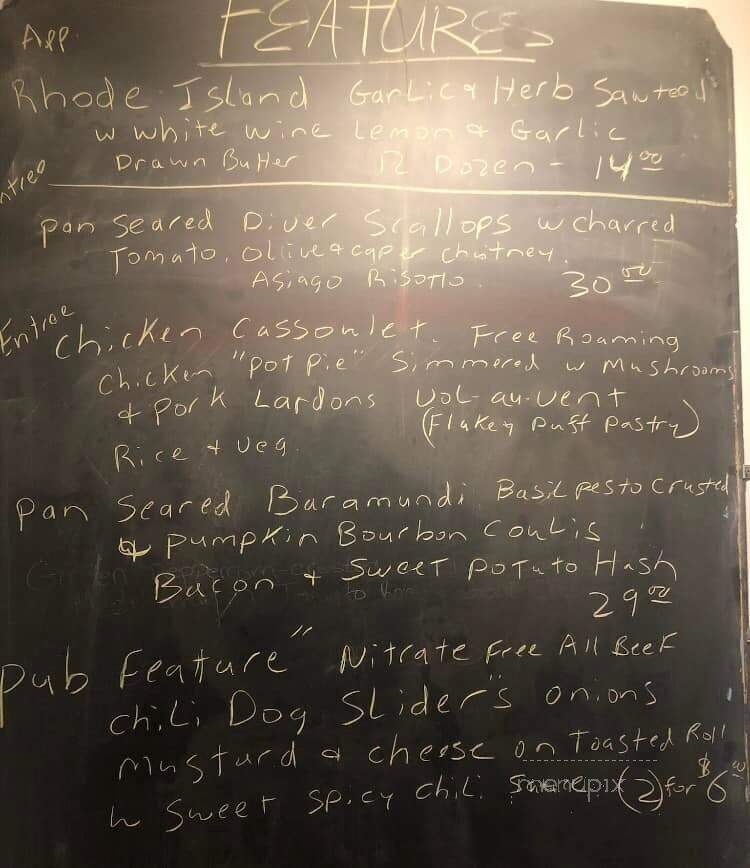 FEATURES
App.
Rhode Island Garlic & Herb Sauteed
w white wine Lemon & Garlic
Drawn Butter 12 Dozen - 14.00
Entree
pan seared Diver Scallops w charred
Tomato, olive & caper chutney.
Asiago Risotto. 30.00
Entree
Chicken Cassoulet. Free Roaming
Chicken "pot pie" Simmered w Mushrooms
& Pork Lardons Vol-au-vent
(Flakey puff pastry)
Rice & Veg.
pan Seared Baramundi Basil pesto crusted
& pumpkin Bourbon Coulis
Bacon & Sweet potato Hash
29.00
pub Feature" Nitrate Free All Beef
chili Dog Slider"s onions
mustard & cheese on Toasted Roll
w Sweet spicy chili (2) for $6
menupix